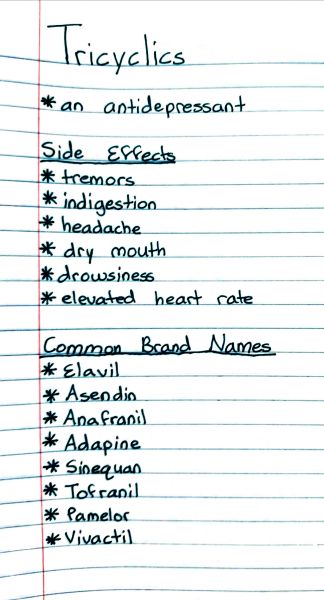 Tricyclics
* an antidepressant
Side Effects
* tremors
* indigestion
* headache
* dry mouth
* drowsiness
* elevated heart rate
Common Brand Names
* Elavil
* Asendin
* Anafranil
* Adapine
* Sinequan
* Tofranil
* Pamelor
* Vivactil